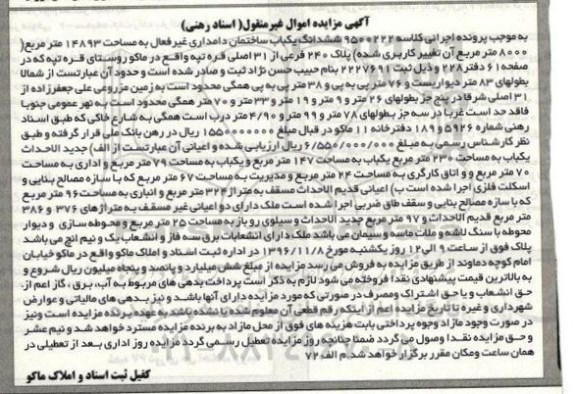 آگهی مزایده اموال غیرمنقول( اسناد رهنی)
به موجب پرونده اجرائی کلاسه ۹۵۰۰۲۲۲ ششدانگ یکباب ساختمان دامداری غیرفعال به مساحت ۱۴۸۹۳ متر مربع(
۸۰۰۰ متر مربع آن تغییر کاربری شده) پلاک ۲۴۰ فرعی از ۳۱ اصلی قره تپه واقع در ماکو روستای قره تپه که در
صفحه ۶۱ دفتر ۲۲۸ و ذیل ثبت ۲۲۲۷۶۹۱ بنام حبیب حسن نژاد ثبت و صادر شده است و حدود آن عبارتست از شمالا
بطولهای ۸۳ متر دیواریست و ۷۶ متر پی به پی و ۳۸ متر پی به پی همگی محدود است به زمین مزروعی علی جعفرزاده از
۳۱ اصلی شرقا در پنج جز بطولهای ۲۶ متر و ۹ متر و ۱۹ متر و ۳۳ متر و ۷۰ متر همگی محدود است به نهر عمومی جنوبا
فاقد حد است غربا در سه جز بطولهای ۷۸ متر و ۹۹ متر و ۴/۹۰ متر درب است همگی به شارع خاکی که طبق اسناد
رهنی شماره ۵۹۲۶ و ۱۸۹ دفترخانه ۱۱ ماکو در قبال مبلغ ۱۵۵۰۰۰۰۰۰۰ ریال در رهن بانک ملی قرار گرفته و طبق
نظر کارشناس رسمی به مبلغ ۶/۵۵۰/۰۰۰/۰۰۰ ریال ارزیابی شده و اعیانی آن عبارتست از الف) جدید الاحداث
یکباب به مساحت ۲۳۰ متر مربع یکباب به مساحت ۱۴۷ متر مربع و یکباب به مساحت ۷۹ متر مربع و اداری به مساحت
۷۰ متر مربع و و اتاق کارگری به مساحت ۲۴ متر مربع و مدیریت به مساحت ۶۷ متر مربع که با سازه مصالح بنایی و
اسکلت فلزی اجرا شده است ب) اعیانی قدیم الاحداث مسقف به متراژ ۳۲۴ متر مربع و انباری به مساحت ۹۶ متر مربع
که با سازه مصالح بنایی و سقف طاق ضربی اجرا شده است ملک دارای دو اعیانی غیر مسقف به متراژهای ۳۷۶ و ۳۸۶
متر مربع قدیم الاحداث و ۹۷ متر مربع جدید الاحداث و سیلوی رو باز به مساحت ۲۵ متر مربع و محوطه سازی و دیوار
محوطه با سنگ لاشه و ملات ماسه و سیمان می باشد ملک دارای انشعابات برق سه فاز و انشعاب یک و نیم انچ می باشد
پلاک فوق از ساعت ۹ الی ۱۲ روز یکشنبه مورخ ۱۳۹۶/۱۱/۸ در اداره ثبت اسناد و املاک ماکو واقع در ماکو خیابان
امام کوچه دماوند از طریق مزایده به فروش می رسد مزایده از مبلغ شش میلیارد و پانصد و پنجاه میلیون ریال شروع و
به بالاترین قیمت پیشنهادی نقدا فروخته می شود لازم به ذکر است پرداخت بدهی های مربوط به آب، برق ، گاز اعم از،
حق انشعاب و یا حق اشتراک و مصرف در صورتی که مورد مزایده دارای آنها باشد و نیز بدهی های مالیاتی و عوارض
شهرداری و غیره تا تاریخ مزایده اعم از اینکه رقم قطعی آن معلوم شده یا نشده باشند به عهده برنده مزایده است ونیز
در صورت وجود مازاد وجوه پرداختی بابت هزینه های فوق از محل مازاد به برنده مزایده مسترد خواهد شد و نیم عشر
و حق مزایده نقدا وصول می گردد ضمنا چنانچه روز مزایده تعطیل رسمی گردد مزایده روز اداری بعد از تعطیلی در
همان ساعت ومکان مقرر برگزار خواهد شد.م الف ۷۲
کفیل ثبت اسناد و املاک ماکو